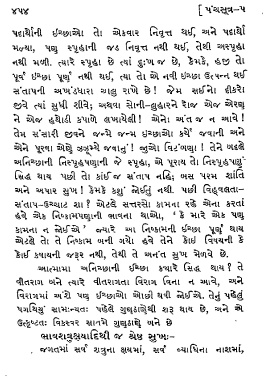 ૪૫૪ [ પંચસૂત્ર-૫
પદાર્થોની ઈચ્છાઓ તો એકવાર નિવૃત્ત થઈ, અને પદાર્થો
મળ્યા, પણ સ્પૃહાની જડ નિવૃત્ત નથી થઈ, તેથી અસ્પૃહા
નથી મળી. ત્યારે સ્પૃહા છે ત્યાં દુઃખ જ છે, કેમકે, હજી તો
પૂર્વ ઈચ્છા પૂર્ણ નથી થઈ, ત્યા તો એ નવી ઈચ્છા ઉત્પન્ન થઈ
સંતાપની અખંડધારા ચાલુ રાખે છે! જેમ સઈનો દીકરો
જીવે ત્યાં સુધી શીવે; અથવા સોની-લુહારને રોજ એજ એરણ
ને એજ હથોડી કપાળે લખાયેલી! એનો અંત જ ન આવે!
તેમ સંસારી જીવને જન્મે જન્મ ઈચ્છાઓ કર્યે જવાની અને
એને પૂરવા એણે ઝઝૂમ્યે જવાનું! જુઓ વિટંબણા! તેને બદલે
અનિચ્છાની નિસ્પૃહપણાની જે સ્પૃહા, એ પૂરાય તો નિસ્પૃહપણું
સિદ્ધ થાય પછી તો કાંઈ જ સંતાપ નહિ; બસ પરમ શાંતિ
અને અપાર સુખ! કેમકે કશું જોઈતું નથી. પછી વિહ્વળતા-
સંતાપ-ઉચ્ચાટ શા? એટલે સત્તરસો કામના રહે એના કરતાં
હવે એક નિષ્કામપણાની ભાવના થાઓ, ‘ કે મારે એક પણ
કામના ન જોઈએ ’ જ્યારે આ નિષ્કામની ઈચ્છા પૂર્ણ થાય
એટલે તો તે નિષ્કામ બની ગયો હવે તેને કોઈ વિષયની કે
કોઈ કષાયની જરૂર નથી, તેથી તે અનંત સુખ મેળવે છે.
આત્મામાં અનિચ્છાની ઈચ્છા ક્યારે સિદ્ધ થાય? તે
વીતરાગ બને ત્યારે વીતરાગતા વિરાગ વિના ન આવે, અને
વિરાગમાં ખરી પણ ઈચ્છાઓ ઓછી થવી જોઈએ. તેનું પહેલું
પગથિયું સામાન્યતઃ પહેલે ગુણઠાણેથી શરૂ થાય છે, અને એ
ઉત્કૃષ્ટતઃ વિકસ્વર સાતમે ગુણઠાણે બને છે
ભાવશત્રુક્ષયાદિથી જ શ્રેષ્ઠ સુખઃ-
જગતમાં સર્વ શત્રુના ક્ષયમાં, સર્વ વ્યાધિના નાશમાં,